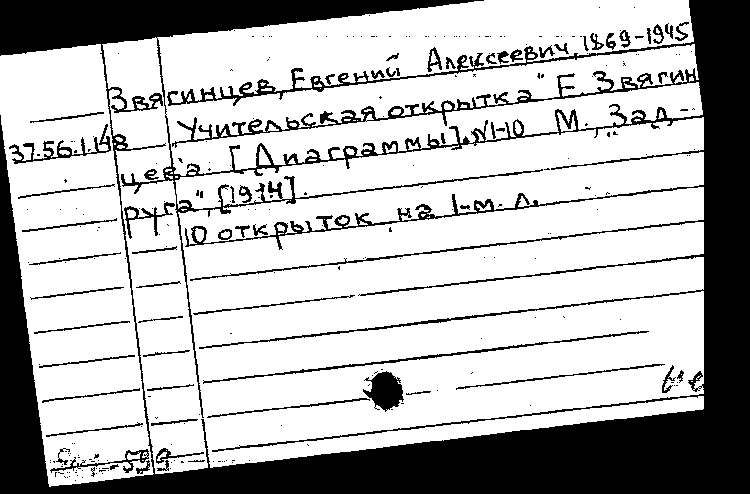 Звягинцев, Евгений Алексеевич, 1869-1945
37.56.1.148
"Учительская открытка" Е. Звягин
цева. [Диаграммы]. №1-10 М., "Зад-
руга", [1914].
10 открыток на 1-м. л.